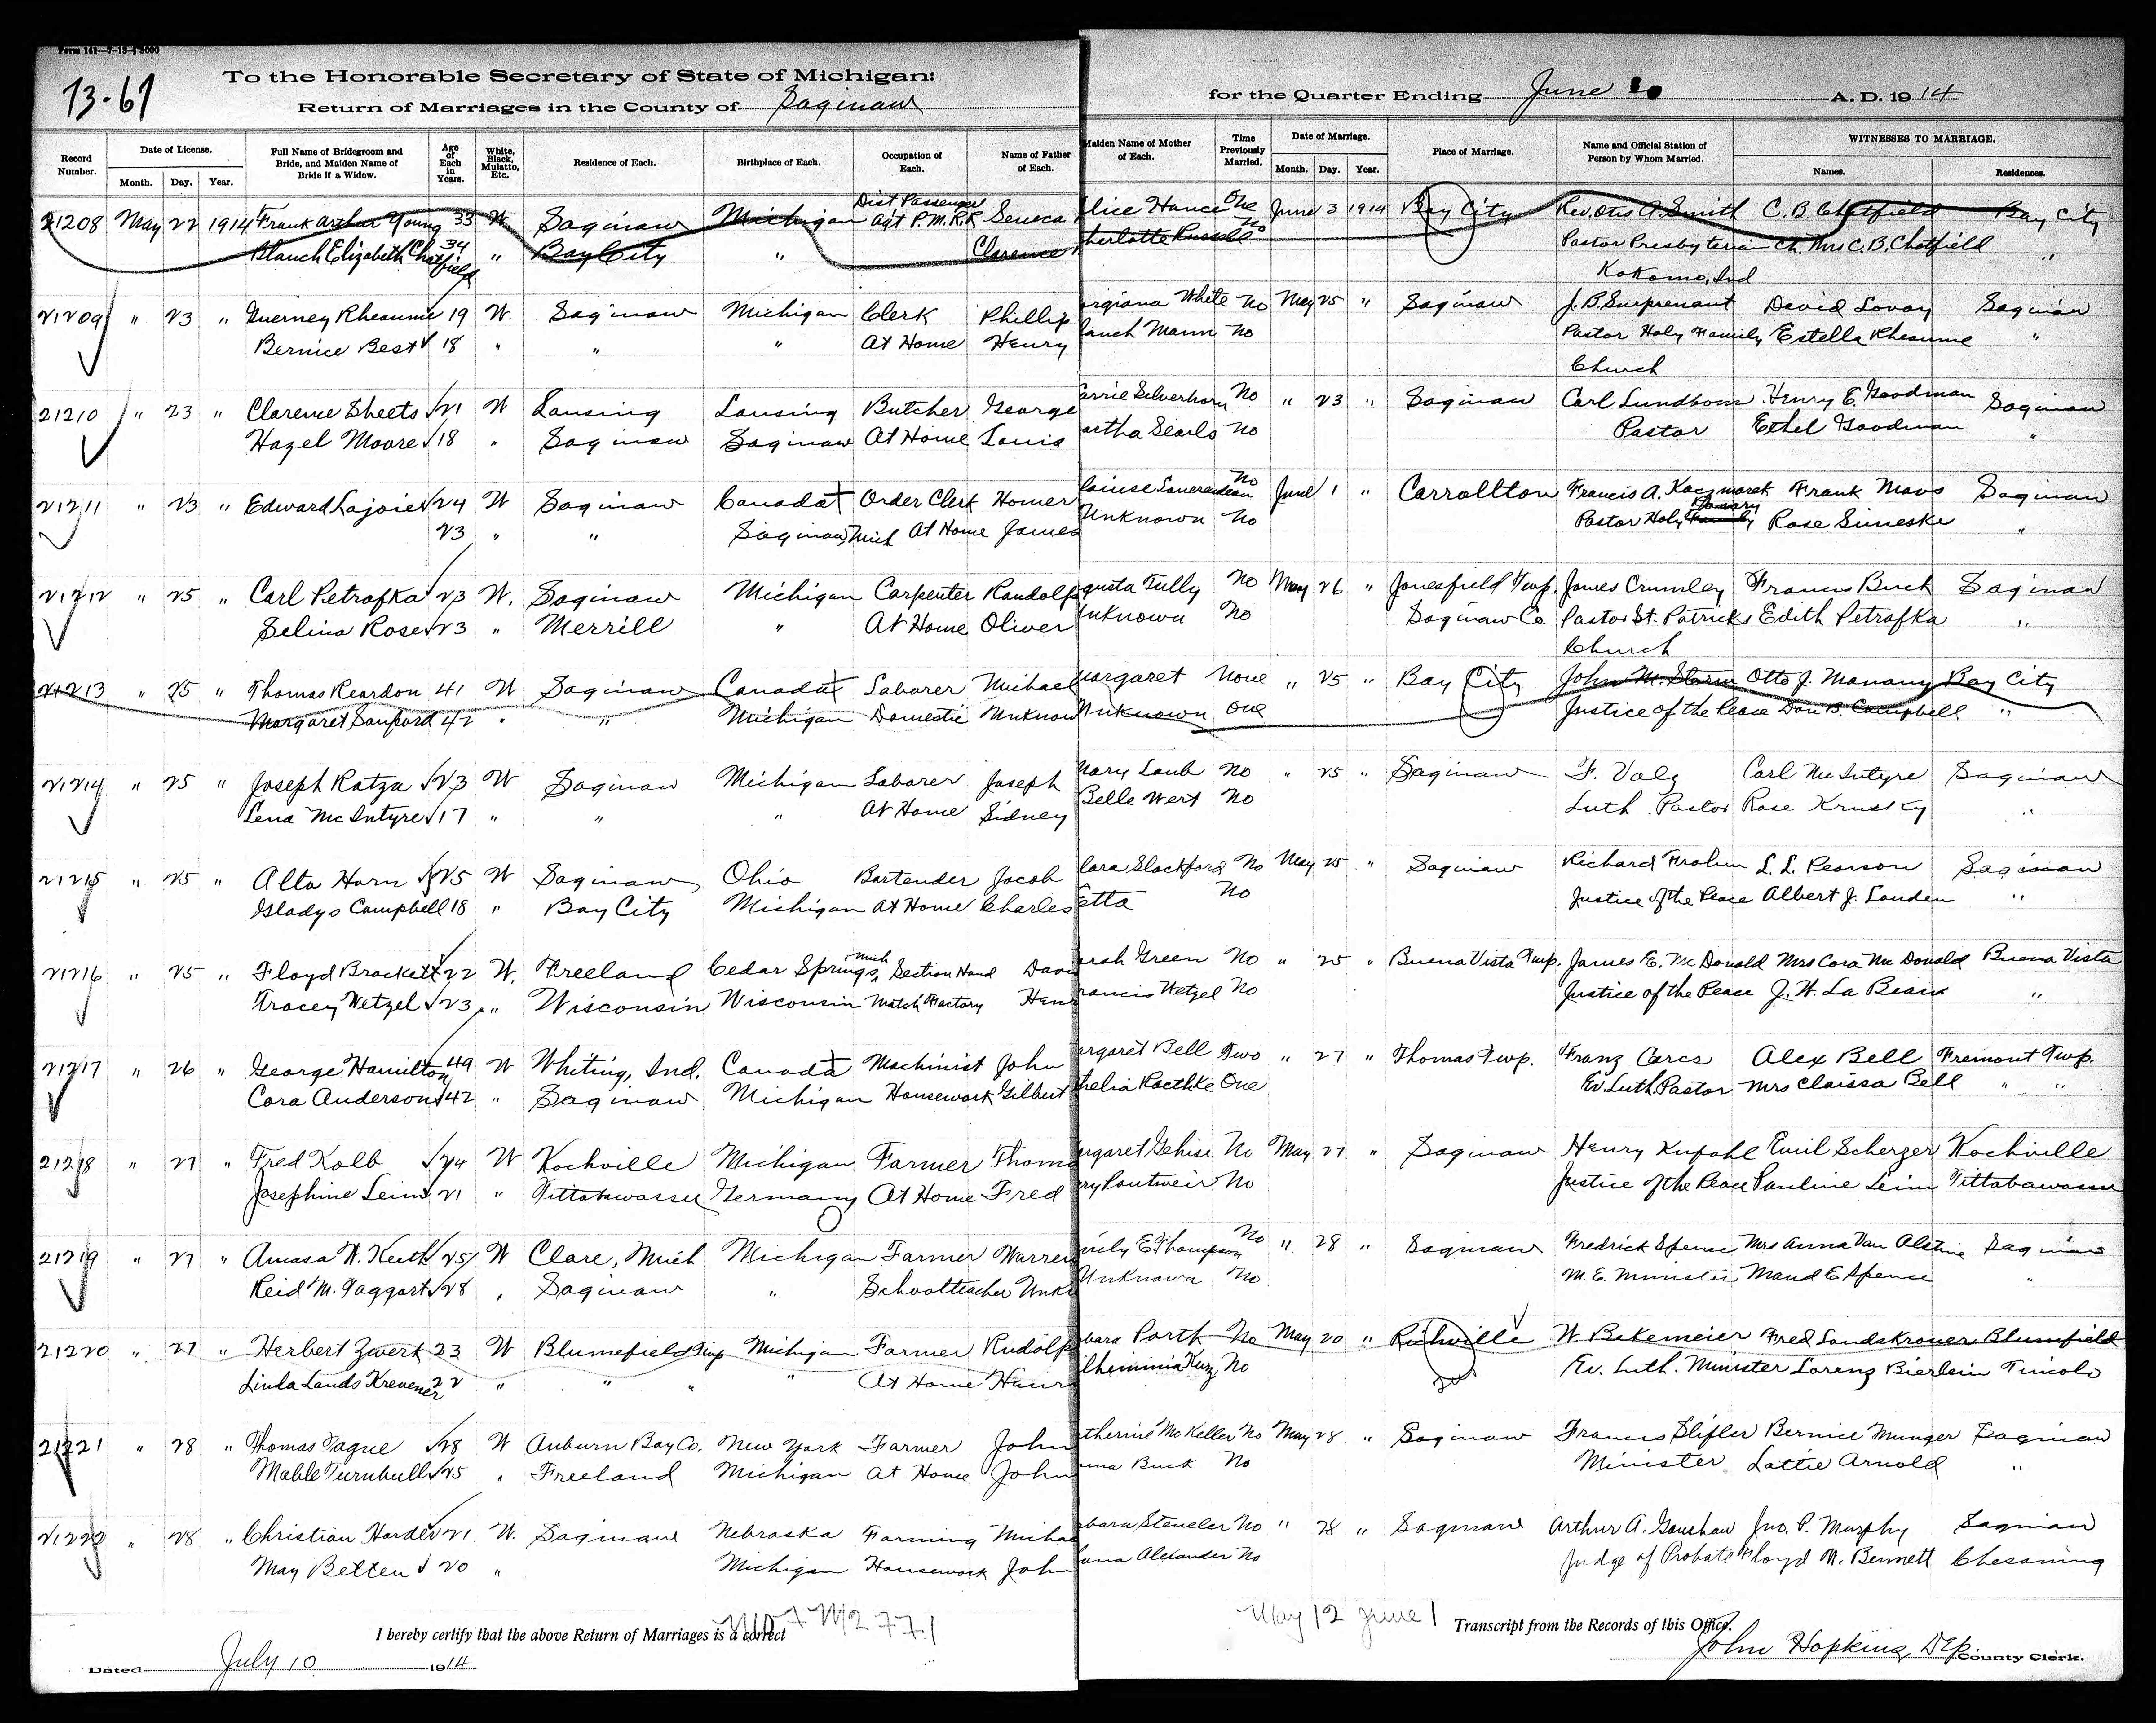 Form 141—7-13-5000
73-61
To the Honorable Secretary of State of Michigan:
Return of Marriages in the County of Saginaw for the Quarter Ending June A. D. 1914
Record Number. Date of License. Month. Day. Year. Full Name of Bridegroom and Bride, and Maiden Name of Bride if a Widow. Age of Each in Years. White, Black, Mulatto, Etc. Residence of Each. Birthplace of Each. Occupation of Each. Name of Father of Each. Maiden Name of Mother of Each. Time Previously Married. Date of Marriage. Month. Day. Year. Place of Marriage. Name and Official Station of Person by Whom Married. WITNESSES TO MARRIAGE. Names. Residences.
21208 May 22 1914 Frank Arthur Young 33 W Saginaw Michigan Dist Passenger Agt P.M.R.R Seneca lice Hance One June 3 1914 Bay City Rev. Otis A. Smith C. B. Chatfield Bay City
Blanch Elizabeth Chatfield 34 " Bay City " Clarence herlotte Russell No Pastor Presbyterian Ch. Mrs C. B. Chatfield "
Kokomo, Ind
21209 " 23 " Guerney Rheaume 19 W. Saginaw Michigan Clerk Phillip orgiana White No May 25 " Saginaw J. B. Surprenant David Lovay Saginaw
Bernice Best 18 " " " At Home Henry lanch Mann No Pastor Holy Family Estella Rheaume "
Church
21210 " 23 " Clarence Sheets 21 W Lansing Lansing Butcher George arrie Silverhorn No " 23 " Saginaw Carl Lundbom Henry E. Goodman Saginaw
Hazel Moore 18 " Saginaw Saginaw At Home Louis artha Searls No Pastor Ethel Goodman "
21211 " 23 " Edward Lajoie 24 W Saginaw Canada Order Clerk Homer No June 1 " Carrollton Francis A. Kaczmarek Frank Mavs Saginaw
23 " " Saginaw, Mich At Home James Unknown No Pastor Holy Rosary Rose Simeske "
21212 " 25 " Carl Petrafka 23 W. Saginaw Michigan Carpenter Randolf gusta Tully No May 26 " Jonesfield Twp. James Crumley Francis Buck Saginaw
Selina Rose 23 " Merrill " At Home Oliver Unknown No Saginaw Co Pastor St. Patricks Edith Petrafka "
Church
21213 " 25 " Thomas Reardon 41 W Saginaw Canada Laborer Michael argaret None " 25 " Bay City John M. Storm Otto J. Manary Bay City
Margaret Sanford 42 " " Michigan Domestic Unknown Unknown One Justice of the Peace Don B. Campbell "
21214 " 25 " Joseph Ratza 23 W Saginaw Michigan Laborer Joseph Mary Laub No " 25 " Saginaw F. Volz Carl McIntyre Saginaw
Lena McIntyre 17 " " " At Home Sidney Belle Wert No Luth. Pastor Rose Krusky "
21215 " 25 " Alta Horn 25 W Saginaw Ohio Bartender Jacob lara Slackford No May 25 " Saginaw Richard Frahm L. L. Pearson Saginaw
Gladys Campbell 18 " Bay City Michigan At Home Charles Etta No Justice of the Peace Albert J. Louden "
21216 " 25 " Floyd Brackett 22 W. Freeland Cedar Springs, Mich Section Hand Davi arah Green No " 25 " Buena Vista Twp. James E. Mc Donald Mrs Cora Mc Donald Buena Vista
Tracey Wetzel 23 " Wisconsin Wisconsin Match Factory Hen rancis Wetzel No Justice of the Peace J. W. La Beau "
21217 " 26 " George Hamilton 49 W Whiting, Ind. Canada Machinist John argaret Bell Two " 27 " Thomas Twp. Franz Cares Alex Bell Fremont Twp.
Cora Anderson 42 " Saginaw Michigan Housework Gilbert helia Raethke One Ev. Luth. Pastor Mrs Claissa Bell " "
21218 " 27 " Fred Kolb 24 W Kochville Michigan Farmer Thoma argaret Gehise No May 27 " Saginaw Henry Kufahl Emil Scherzer Kochville
Josephine Leim 21 " Tittabawassee Germany At Home Fred ry Pautweir No Justice of the Peace Pauline Leim Tittabawassee
21219 " 27 " Amasa W. Keith 25 W Clare, Mich Michigan Farmer Warren mily E Thompson No " 28 " Saginaw Fredrick Spence Mrs Anna Van Alstine Saginaw
Reid M. Taggart 28 " Saginaw " Schoolteacher Unkn Unknown No M. E. Minister Maud E Spence "
21220 " 27 " Herbert Zwerk 23 W Blumefield Twp Michigan Farmer Rudolf bara Porth No May 20 " Richville W. Bekemeier Fred Landskroner Blumfield
Linda Lands Krenener 22 " " " " At Home Henr lheminia Kuzz No Ev. Luth. Minister Lorenz Bierlein Tuscola
21221 " 28 " Thomas Tague 28 W Auburn Bay Co. New York Farmer John therine McKeller No May 28 " Saginaw Francis Slifler Bernice Munger Saginaw
Mable Turnbull 25 " Freeland Michigan At Home John nna Buck No Minister Lottie Arnold "
21222 " 28 " Christian Harder 21 W. Saginaw Nebraska Farming Micha bara Steneler No " 28 " Saginaw Arthur A. Gaushaw Jno. P. Murphy Saginaw
May Betten 20 " Michigan Housework John ana Alexander No Judge of Probate Floyd W. Bennett Chesaning
May 12 June 1
I hereby certify that the above Return of Marriages is a correct Transcript from the Records of this Office.
Dated July 10 1914 John Hopkins, Dep. County Clerk.